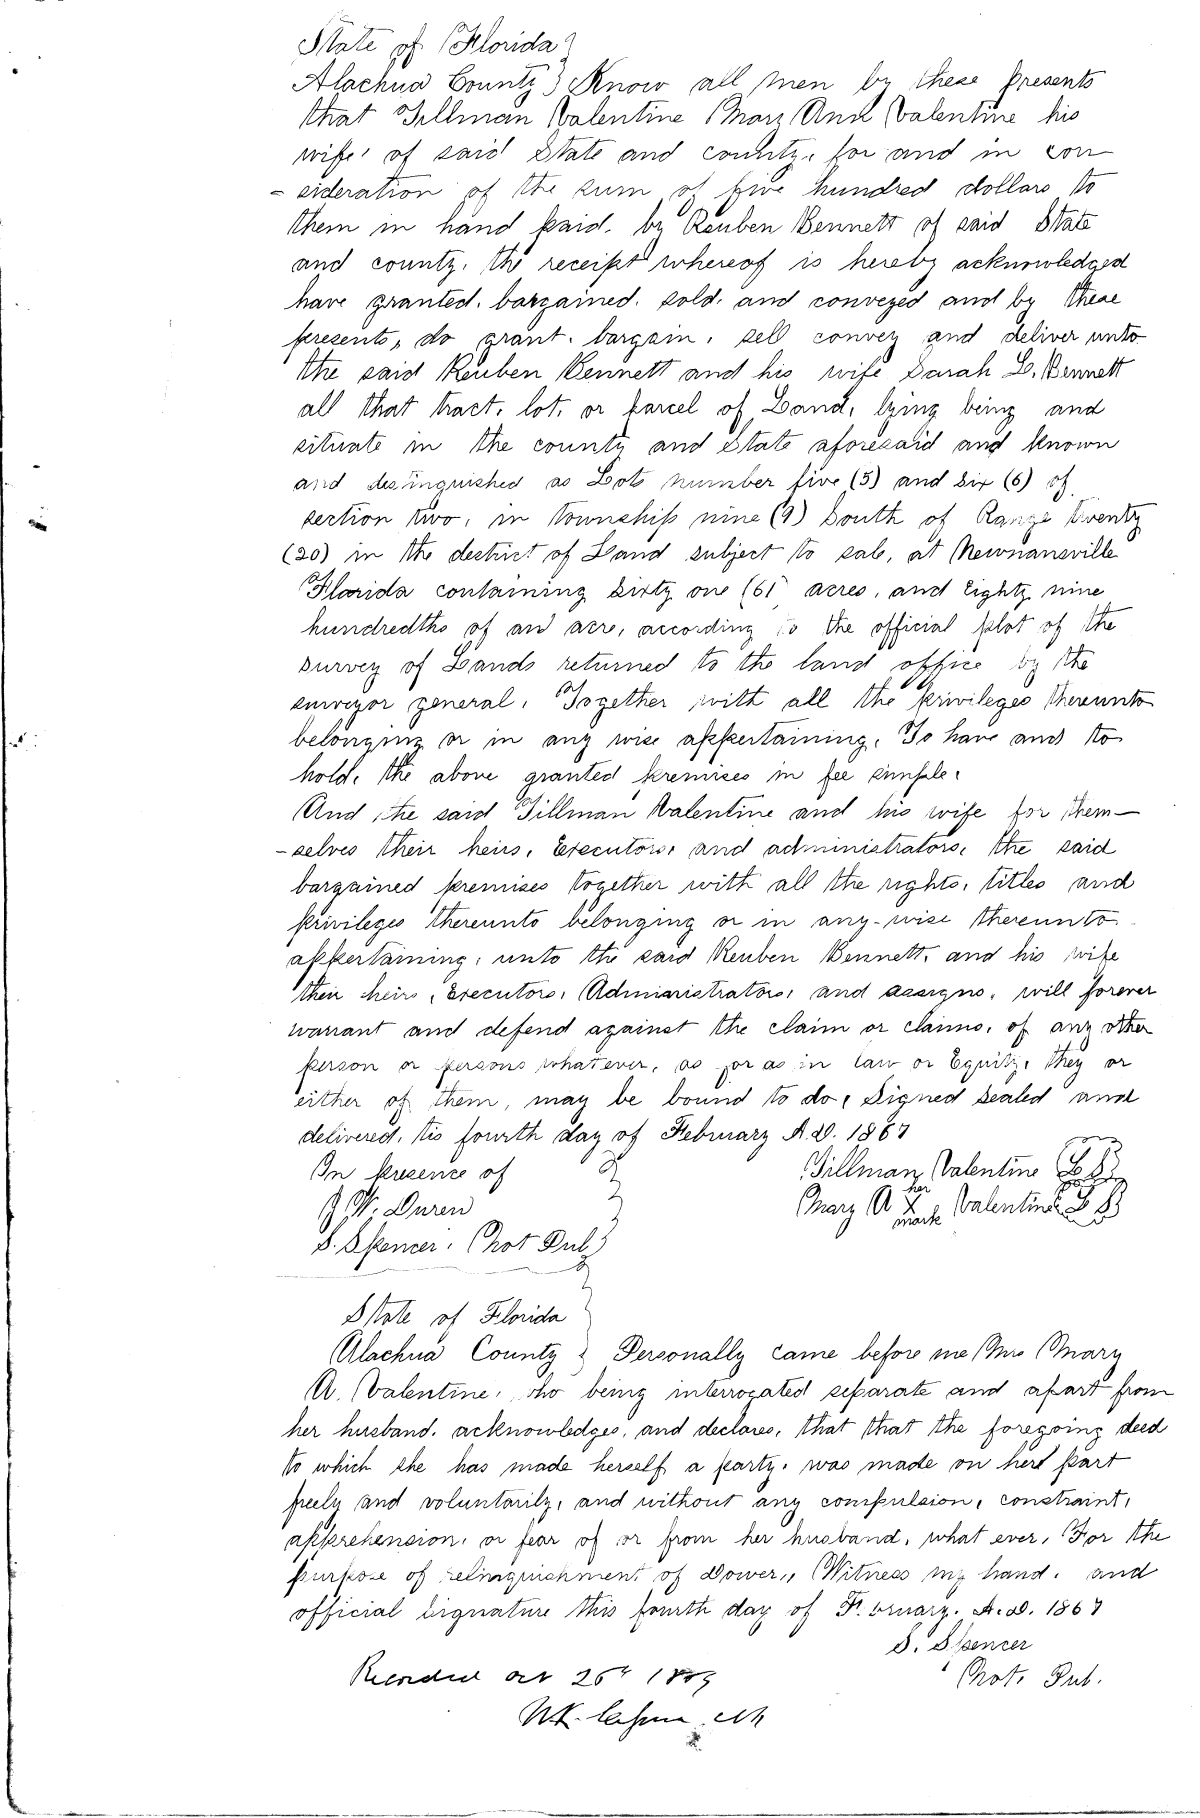 State of Florida }
Alachua County } Know all men by these presents
that Tillman Valentine Mary Ann Valentine his
wife, of said State and county, for and in con
- sideration of the sum of five hundred dollars to
them in hand paid, by Reuben Bennett of said State
and county, the receipt whereof is hereby acknowledged
have granted, bargained, sold, and conveyed and by these
presents, do grant, bargain, sell convey and deliver unto
the said Reuben Bennett and his wife Sarah L. Bennett
all that tract, lot, or parcel of Land, lying being and
situate in the county and State aforesaid and known
and destinguished as Lots number five (5) and Six (6) of
section two, in township nine (9) South of Range twenty
(20) in the destrict of Land subject to sale, at Newnansville
Florida containing Sixty one (61 acres, and Eighty nine
hundredths of an acre, according to the official plot of the
survey of Lands returned to the land office by the
surveyor general, Together with all the privileges thereunto
belonging or in any wise appertaining, To have and to
hold, the above granted premises in fee simple.
And the said Tillman Valentine and his wife for them-
- selves their heirs, Executors, and administrators, the said
bargained premises together with all the rights, titles and
privileges thereunto belonging or in any-wise thereunto
appertaining, unto the said Reuben Bennett, and his wife
their heirs, Executors, Administrators, and assigns, will forever
warrant and defend against the claim or claims, of any other
person or persons whatever, as far as in law or Equity, they or
either of them, may be bound to do, Signed Sealed and
delivered, tis fourth day of February A.D. 1867
In presence of } Tillman Valentine L S
J. W. Duren } Mary A her X mark Valentine L S
S. Spencer. Not Pub }
State of Florida }
Alachua County } Personally came before me Mrs Mary
A. Valentine, who being interrogated separate and apart from
her husband, acknowledges, and declares, that that the foregoing deed
to which she has made herself a party, was made on her part
freely and voluntarily, and without any compulsion, constraint,
apprehension, or fear of or from her husband, what ever, For the
purpose of relinquishment of Dower,, Witness my hand, and
official Signature this fourth day of February. A.D. 1867
S. Spencer
Not. Pub.
Recorded 26th